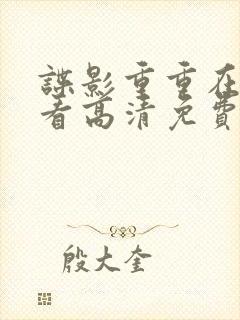 諜影重重在
看高清免費
殷大奎